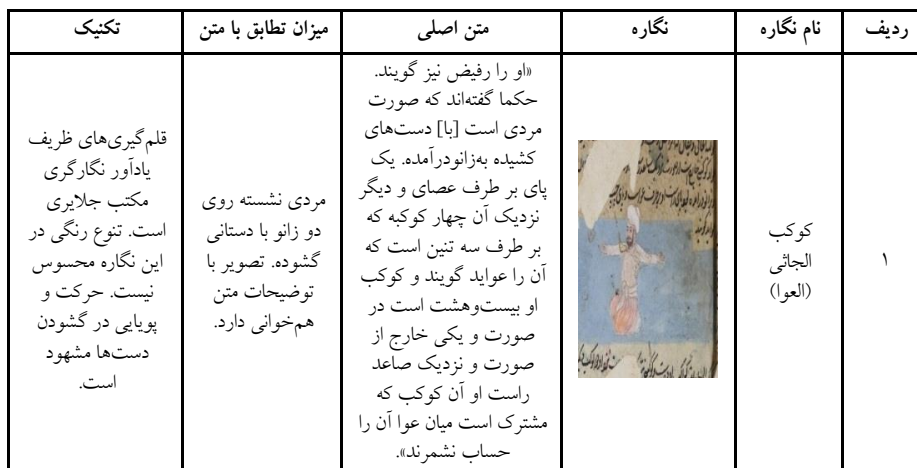 ردیف
نام نگاره
نگاره
متن اصلی
میزان تطابق با متن
تکنیک
۱
کوکب
الجاثی
(العوا)
«او را رفیض نیز گویند.
حکما گفته‌اند که صورت
مردی است [با] دست‌های
کشیده به‌زانودرآمده. یک
پای بر طرف عصای و دیگر
نزدیک آن چهار کوکبه که
بر طرف سه تنین است که
آن را عواید گویند و کوکب
او بیست‌وهشت است در
صورت و یکی خارج از
صورت و نزدیک صاعد
راست او آن کوکب که
مشترک است میان عوا آن را
حساب نشمرند».
مردی نشسته روی
دو زانو با دستانی
گشوده. تصویر با
توضیحات متن
هم‌خوانی دارد.
قلم‌گیری‌های ظریف
یادآور نگارگری
مکتب جلایری
است. تنوع رنگی در
این نگاره محسوس
نیست. حرکت و
پویایی در گشودن
دست‌ها مشهود
است.